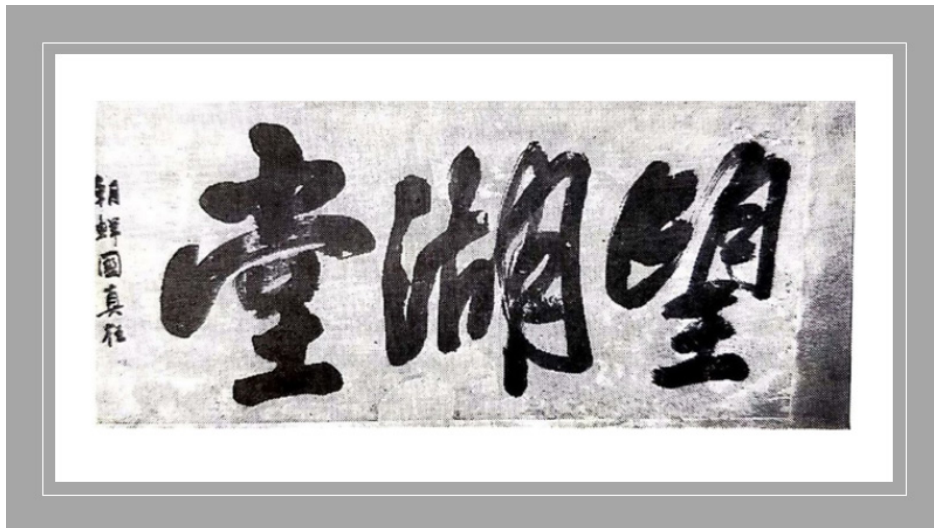 望湖堂
朝鮮國真狂